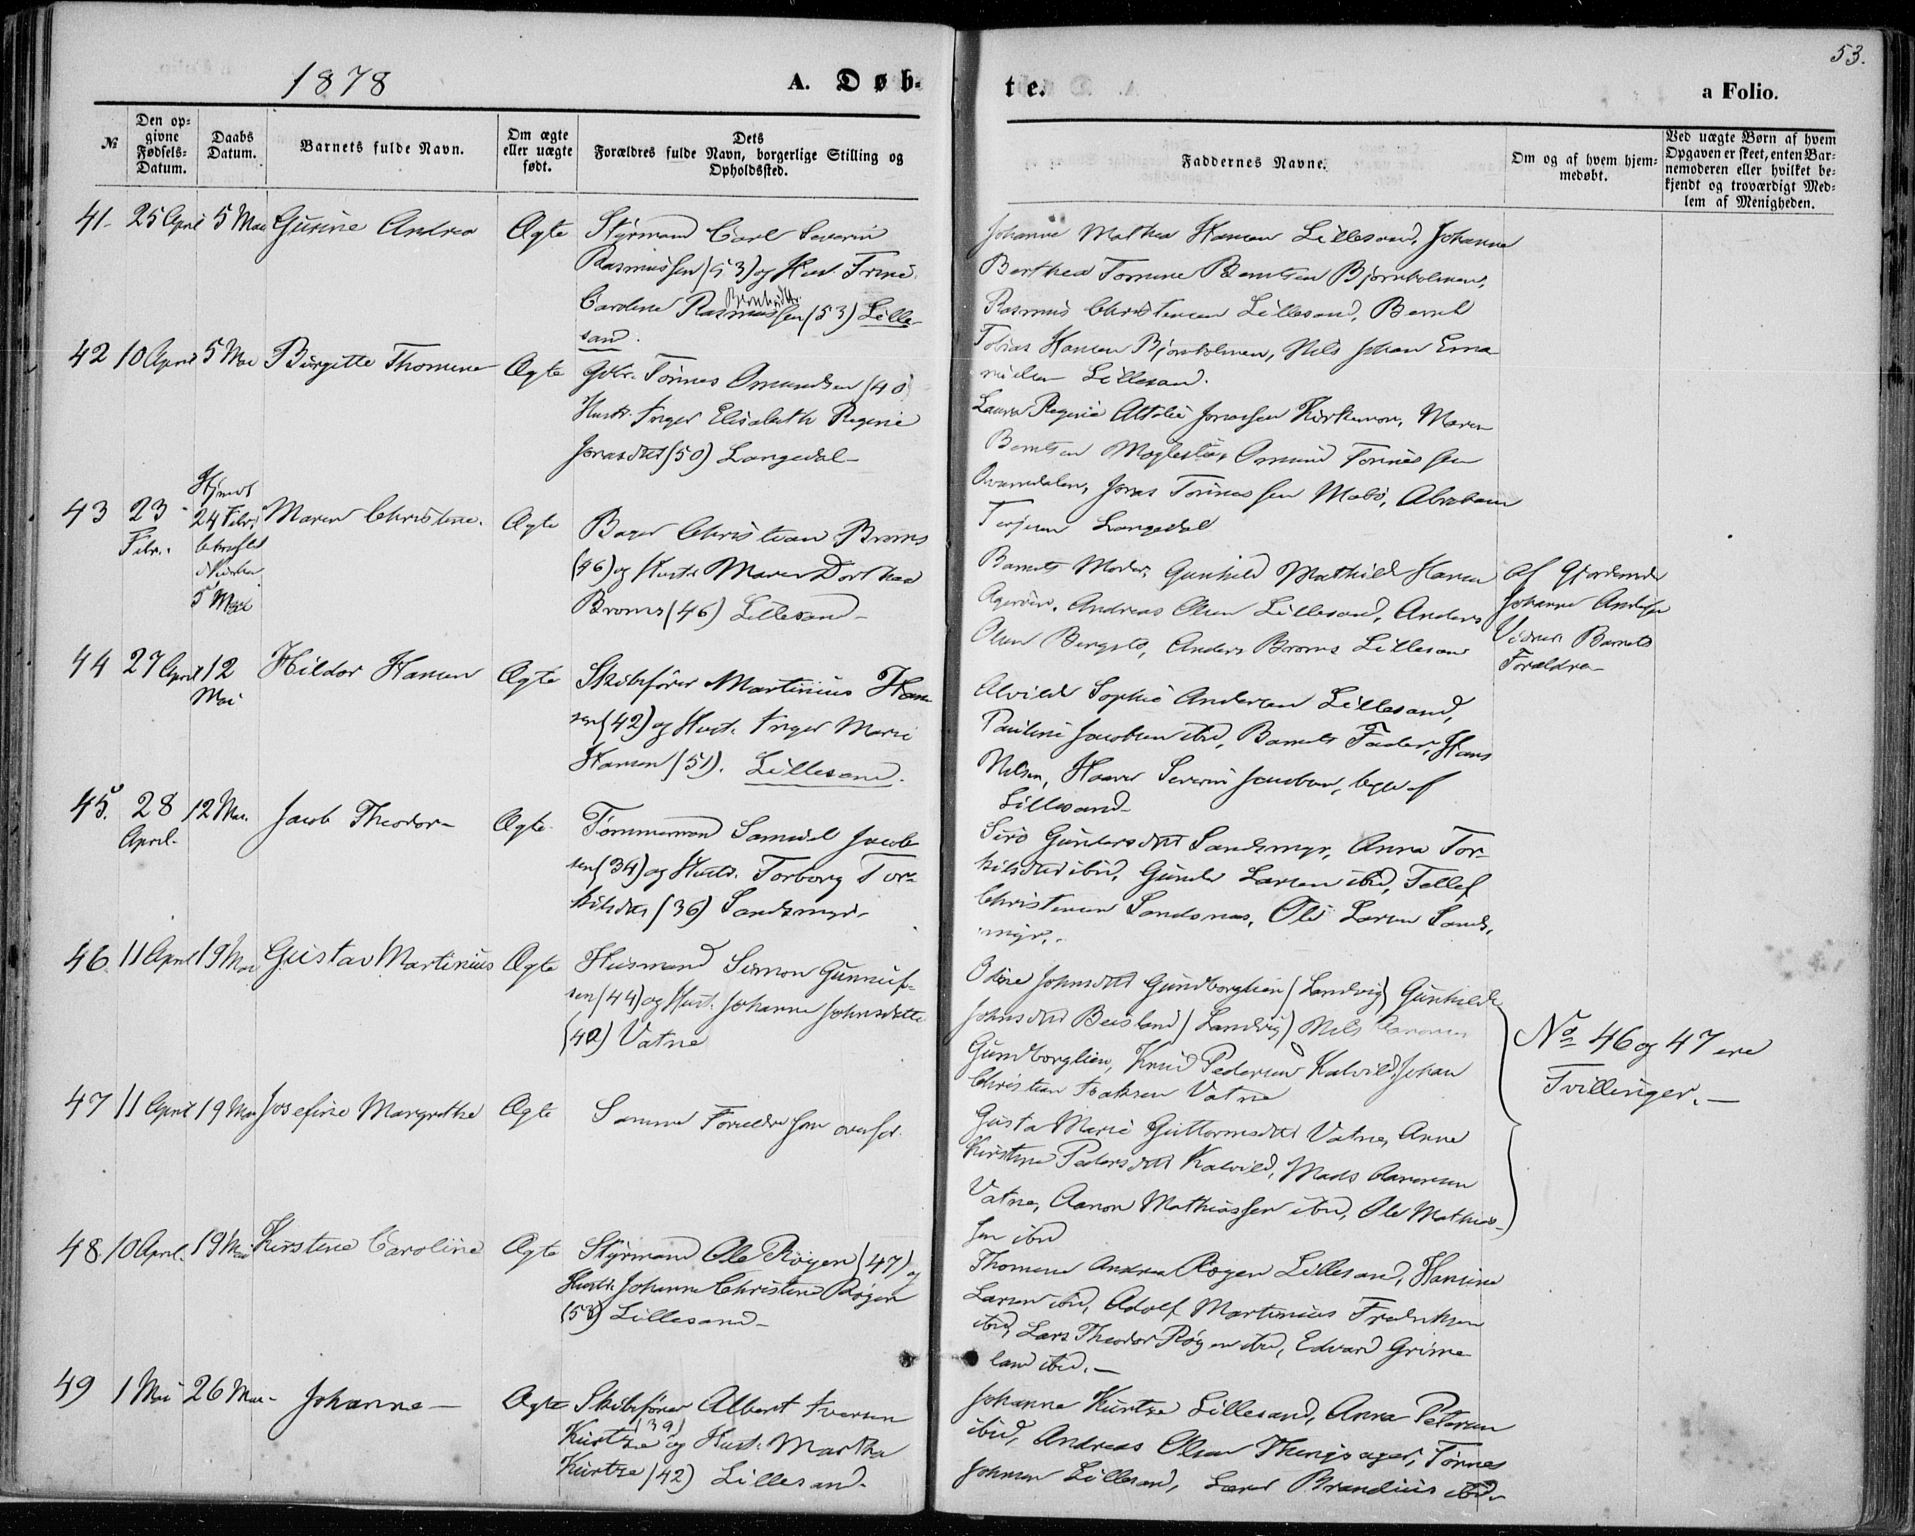 53.
1878
A. Døb-
te.
a Folio.
№
Den op-
givne
Fødsels-
Datum.
Daabs
Datum.
Barnets fulde Navn.
Om ægte
eller uægte
født.
Dets
Forældres fulde Navn, borgerlige Stilling og
Opholdssted.
Faddernes Navne.
Om og af hvem hjem-
medøbt.
Ved uægte Børn af hvem
Opgaven er skeet, enten Bar-
nemoderen eller hvilket be-
kjendt og troværdigt Med-
lem af Menigheden.
41. 25 April 5 Mai Gusine Andrea Ægte
Styrmand Carl Severin
Rasmussen (53) og Hust. Trine
Caroline Rasmussen (53) Lille-
sand.
Johanne Mathea Hansen Lillesand, Johanne
Berthea Tomine Berntsen Bjørnholmen,
Rasmus Christensen Lillesand, Bernt
Tobias Hansen Bjørnholmen, Nils Johan Ema-
nuelsen Lillesand.
42 10 April 5 Mai Birgitte Thomine Ægte
Tønnes Omundsen (40)
Hustr. Inger Elisabeth Regine
Jonasdtt (50) Langedal
Laura Regine Attalie Jonassen Kirkemon, Maren
Berntsen Møglestu, Omund Tønnessen
Jonas Tønnessen Mobø, Abraham
Terjesen Langedal
43 23 Febr. Hjemdt 24 Febr. 5 Mai Maren Christine. Ægte
Bager Christian Broms
(46) og Hustr. Maren Dorthea
Broms (46) Lillesand
Barnets Moder, Gunhild Mathild Hansen
Agerøen, Andreas Olsen Lillesand, Anders
Olsen Bergstø, Anders Broms Lillesand
af Gjordemoder
Johanne
Barnets
Forældre
44 27 April 12 Mai Hildor Hansen Ægte
Skibsfører Martinius Han-
sen (42) og Hust. Inger Marie
Hansen (51). Lillesand.
Alvilde Sophie Andersen Lillesand,
Pauline Jacobsen ibid, Barnets Fader, Hans
Nilsen, Haaver Severin Jacobsen, begge af
Lillesand
45. 28 April. 12 Mai. Jacob Theodor Ægte
Tømmermand Samuel Jacob-
sen (34) og Hustr. Torborg Tor-
kilsdtt (36) Sandsmyr.
Siro Gundersdtt Sandsmyr, Anna Tor-
kilsdtt ibid, Gunder Larsen ibid, Tellef
Christensen Sandsnes, Ole Larsen Sands-
myr.
46. 11 April 19 Mai Gustav Martinius Ægte
Husmand Simon Gunnuf-
sen (44) og Hust. Johanne Johnsdatter
(42) Vatne
Oline Johnsdtt Gundborglien (Landvig) Gunhild
Johnsdtt Beisland (Landvig) Nils Aanonsen
Gundborglien, Knud Pedersen Kalvild, Johan
Christian Isaksen Vatne
No 46 og 47 ere
Tvillinger.
47 11 April 19 Mai Josefine Margrethe Ægte
Samme Forældre som ovenfor.
Gusta Marie Guttormsdtt Vatne, Anne
Kirstine Pedersdtt Kalvild, Mads Aanonsen
Vatne, Aanon Mathiassen ibid, Ole Mathias-
sen ibid
48. 10 April. 19 Mai Kirstine Caroline Ægte
Styrmand Ole Røgen (47) og
Hustr. Johanne Christine Røgen
(53) Lillesand
Thomine Andrea Røgen Lillesand, Hansine
Larsen ibid, Adolf Martinius Fredriksen
ibid, Lars Theodor Røgen ibid, Edvard Grime-
land ibid.
49 1 Mai 26 Mai Johanne Ægte
Skibsfører Albert Iversen
Kurtze (39) og Hust. Martha
Kurtze (42) Lillesand.
Johanne Kurtze Lillesand, Anna Petersen
ibid, Andreas Olsen Thingsager, Tønnes
Johnsen Lillesand, Brandius ibid.